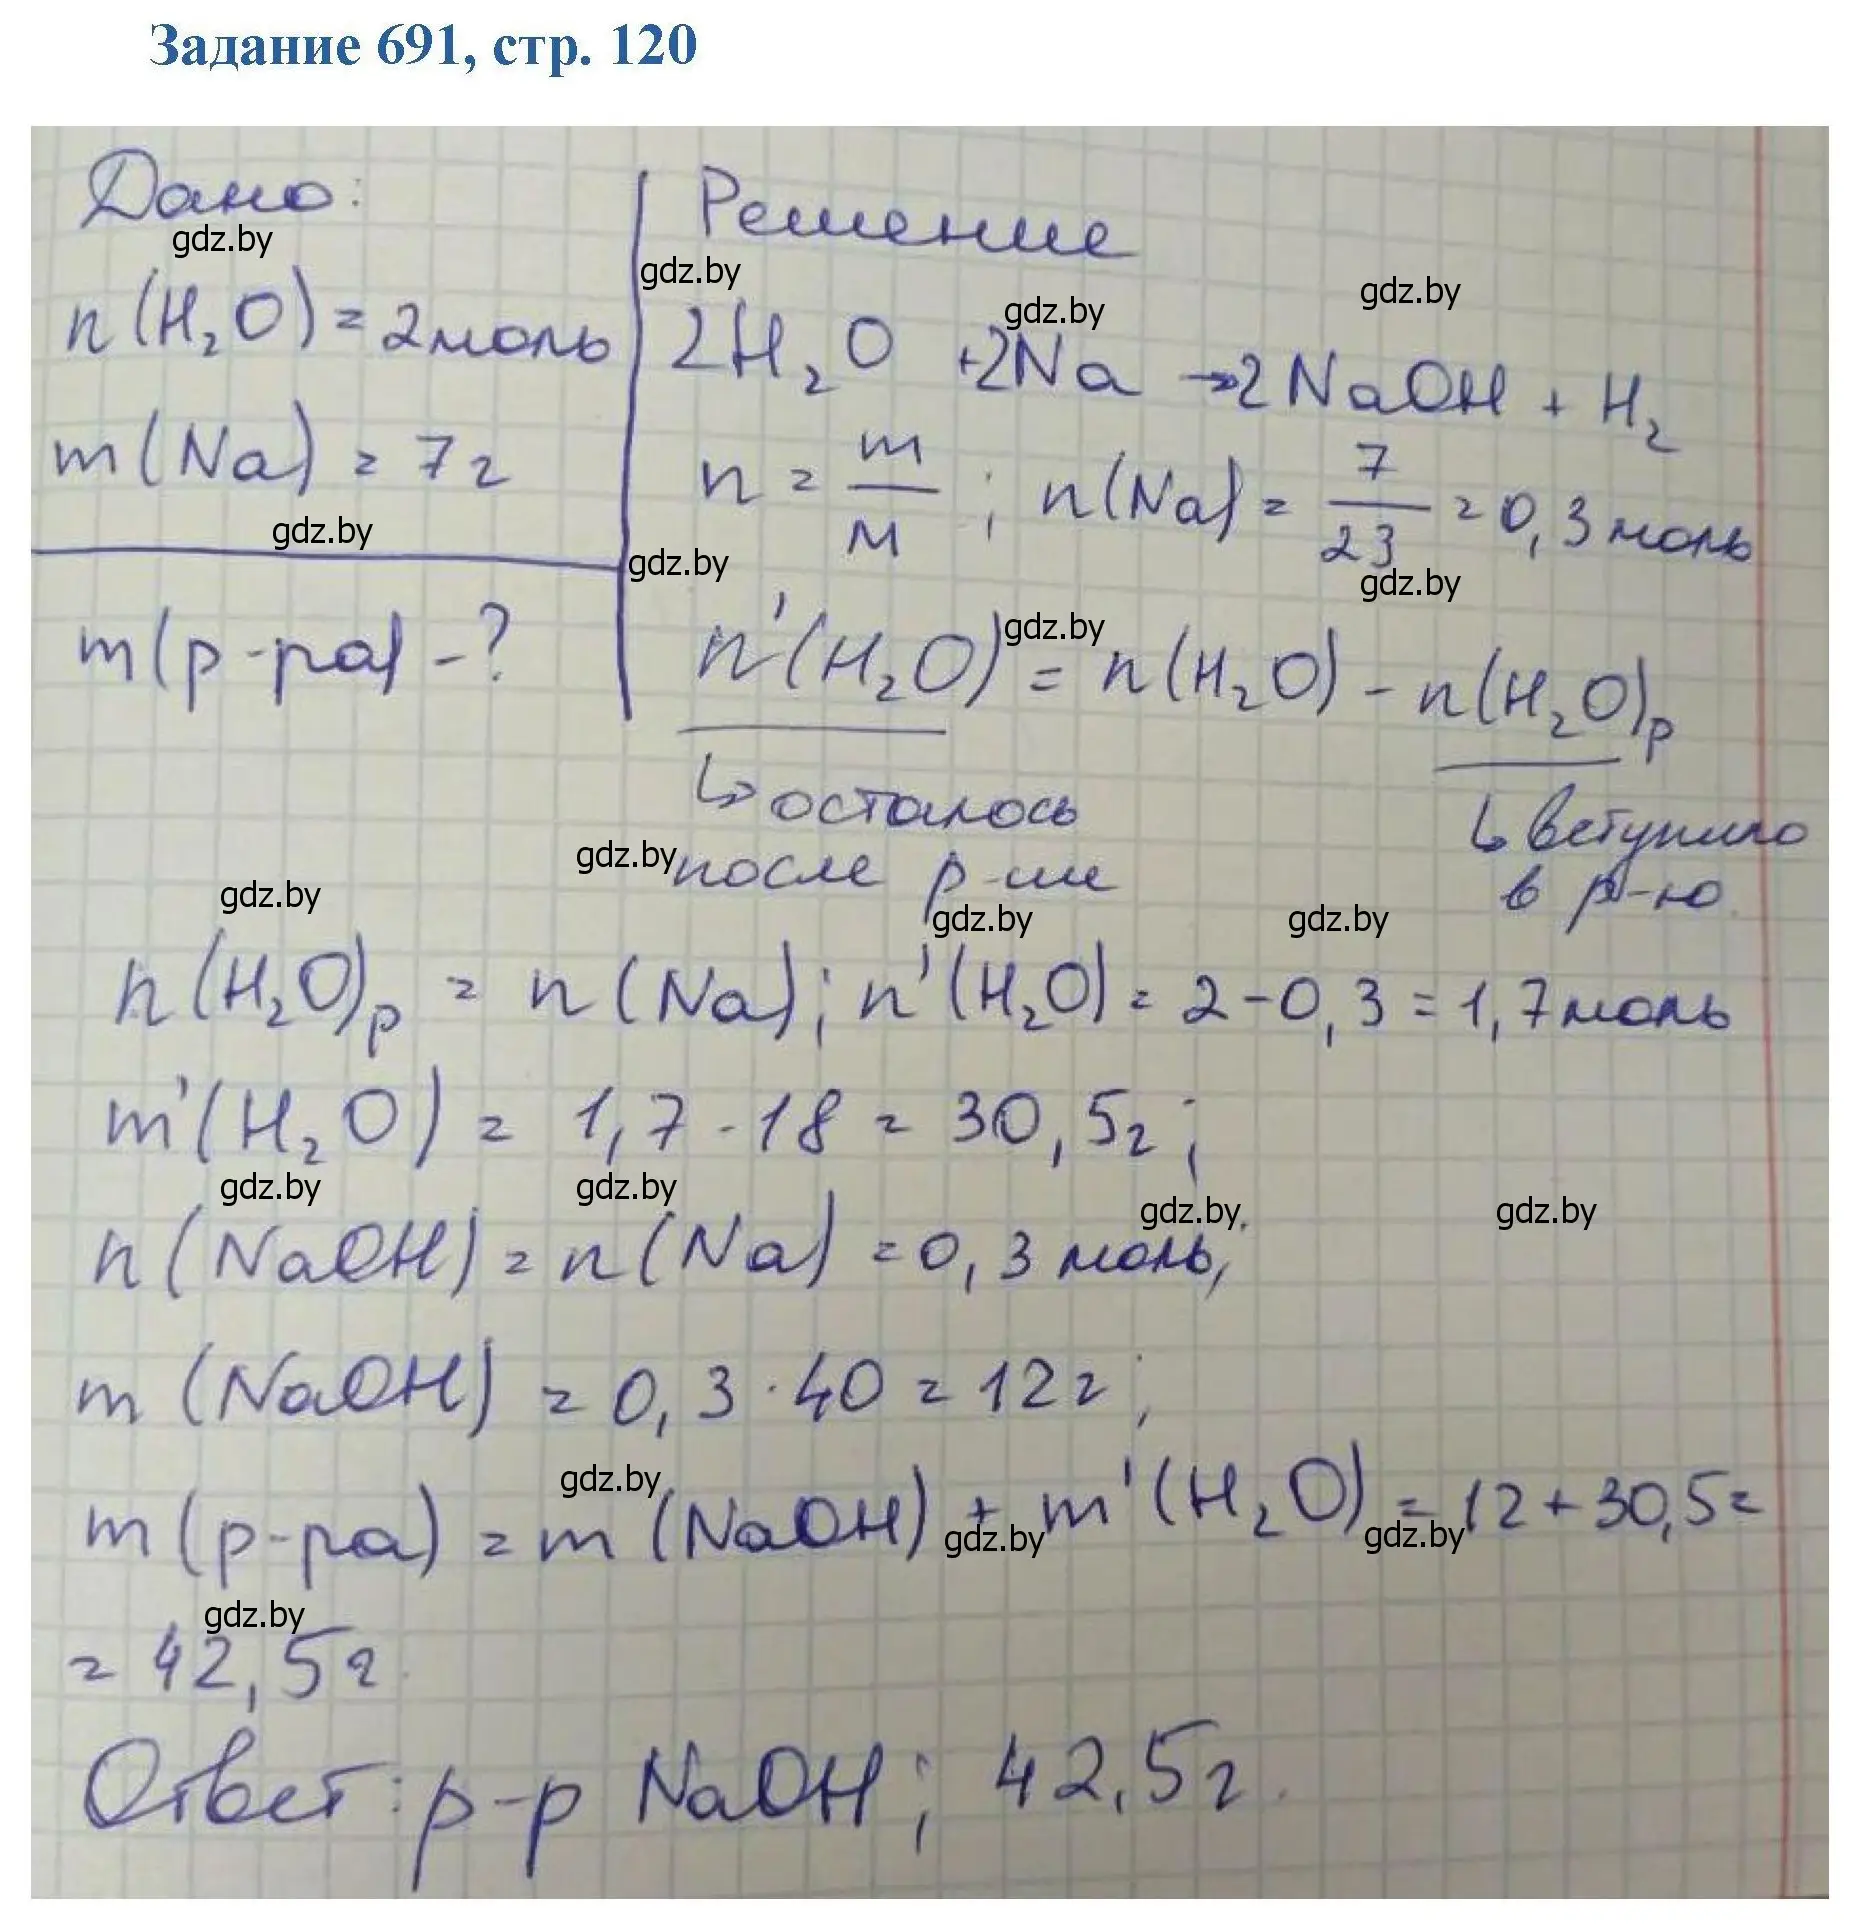 Задание 691, стр. 120
Дано:
gdz.by
n(H₂O) = 2 моль
m(Na) = 7 г
gdz.by
m(р-ра) - ?
Решение
gdz.by
gdz.by
gdz.by
2H₂O + 2Na → 2NaOH + H₂
n = m/M ; n(Na) = 7/23 = 0,3 моль
gdz.by
gdz.by
gdz.by
n'(H₂O) = n(H₂O) - n(H₂O)р
↳ осталось
после р-ии
↳ вступило
в р-ю
gdz.by
gdz.by
gdz.by
gdz.by
n(H₂O)р = n(Na); n'(H₂O) = 2 - 0,3 = 1,7 моль
m'(H₂O) = 1,7 · 18 = 30,5 г;
gdz.by
gdz.by
gdz.by
gdz.by
n(NaOH) = n(Na) = 0,3 моль;
m(NaOH) = 0,3 · 40 = 12 г;
gdz.by
m(р-ра) = m(NaOH) + m'(H₂O) = 12 + 30,5 =
gdz.by
gdz.by
gdz.by
= 42,5 г
Ответ: р-р NaOH; 42,5 г.